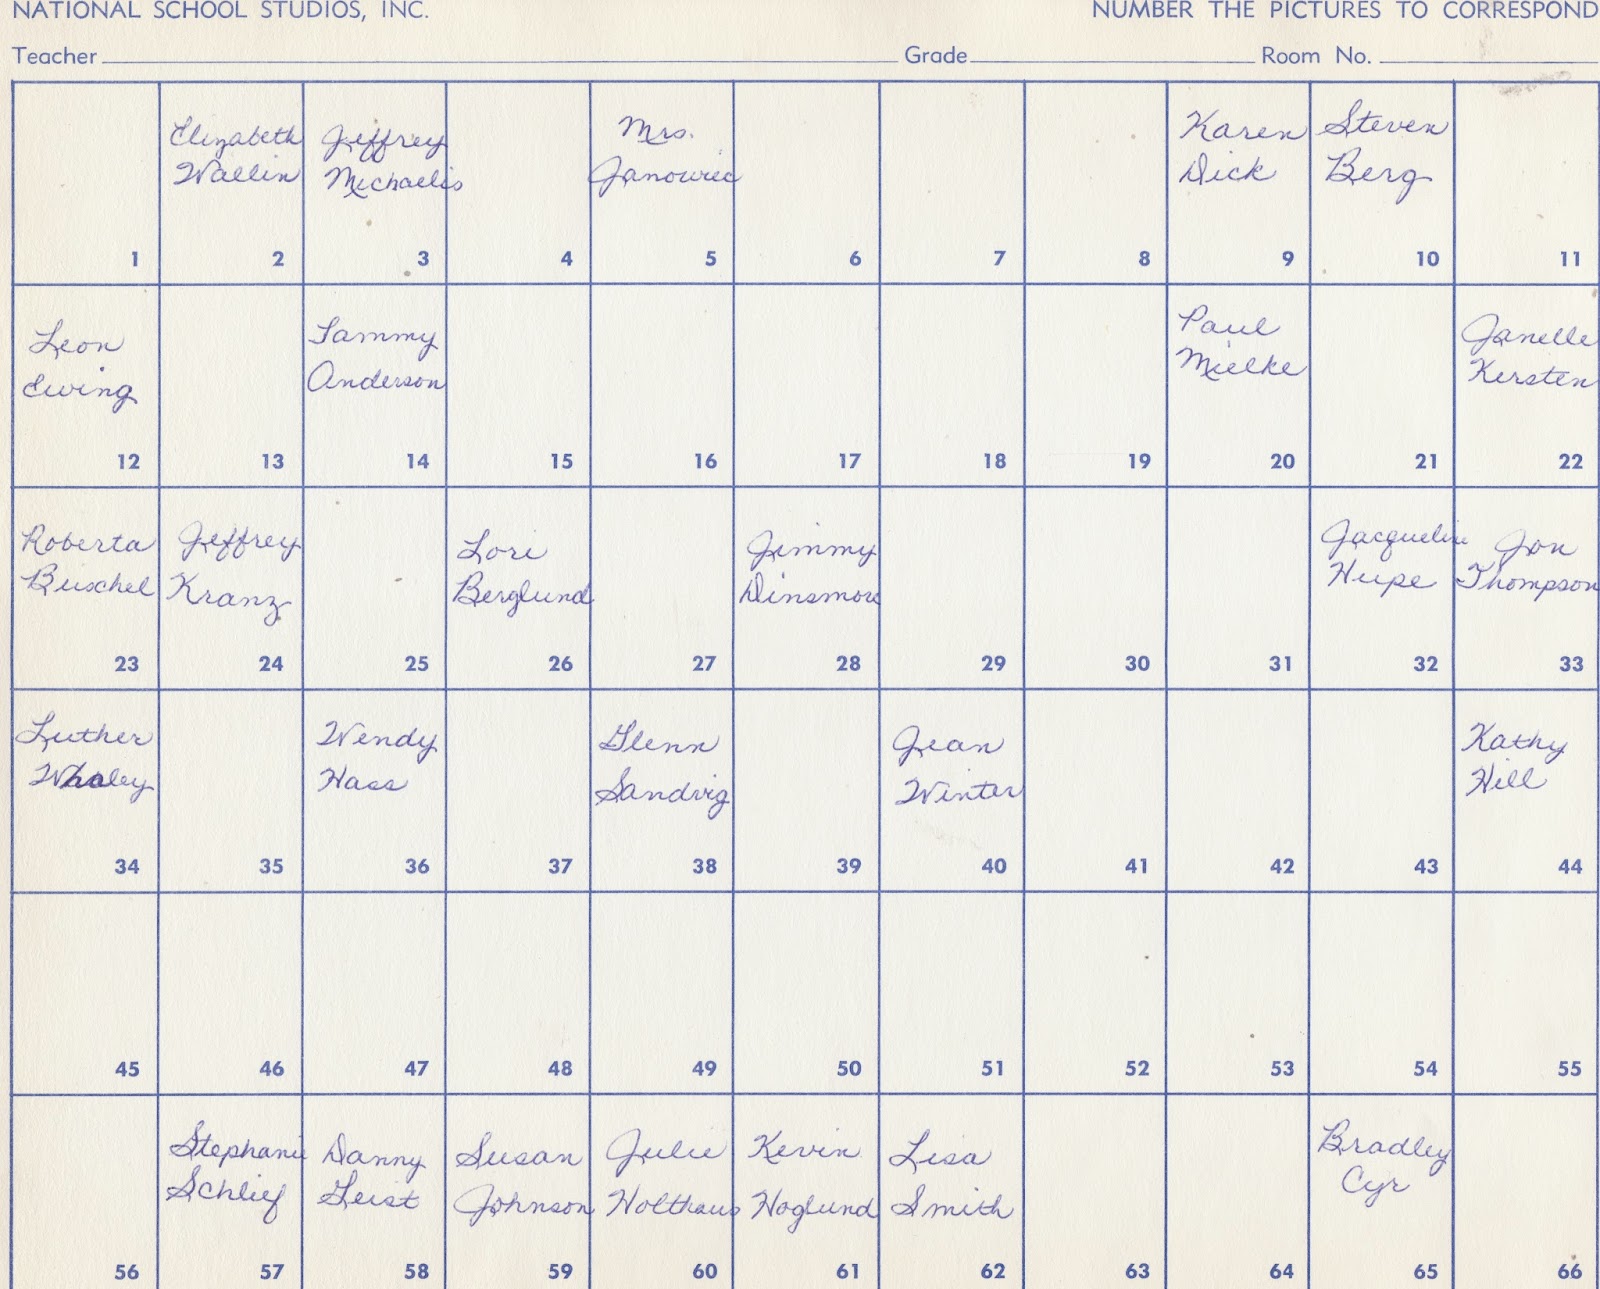 NATIONAL SCHOOL STUDIOS, INC. NUMBER THE PICTURES TO CORRESPOND
Teacher Grade Room No.
Elizabeth Jeffrey Mrs. Karen Steven
Wallin Michaelis Janowiec Dick Berg
1 2 3 4 5 6 7 8 9 10 11
Leon Tammy Paul Janelle
Ewing Anderson Mielke Kersten
12 13 14 15 16 17 18 19 20 21 22
Roberta Jeffrey Lori Jimmy Jacqueline Jon
Buschel Kranz Berglund Dinsmore Hupe Thompson
23 24 25 26 27 28 29 30 31 32 33
Luther Wendy Glenn Jean Kathy
Whaley Hass Sandvig Winter Hill
34 35 36 37 38 39 40 41 42 43 44
45 46 47 48 49 50 51 52 53 54 55
Stephanie Danny Susan Julie Kevin Lisa Bradley
Schlief Geist Johnson Holthaus Hoglund Smith Cyr
56 57 58 59 60 61 62 63 64 65 66